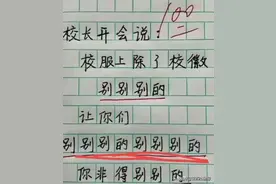 校长开会说：100
校服上除了校徽
别别别的
让你们
别别别的别别别的
你非得别别的